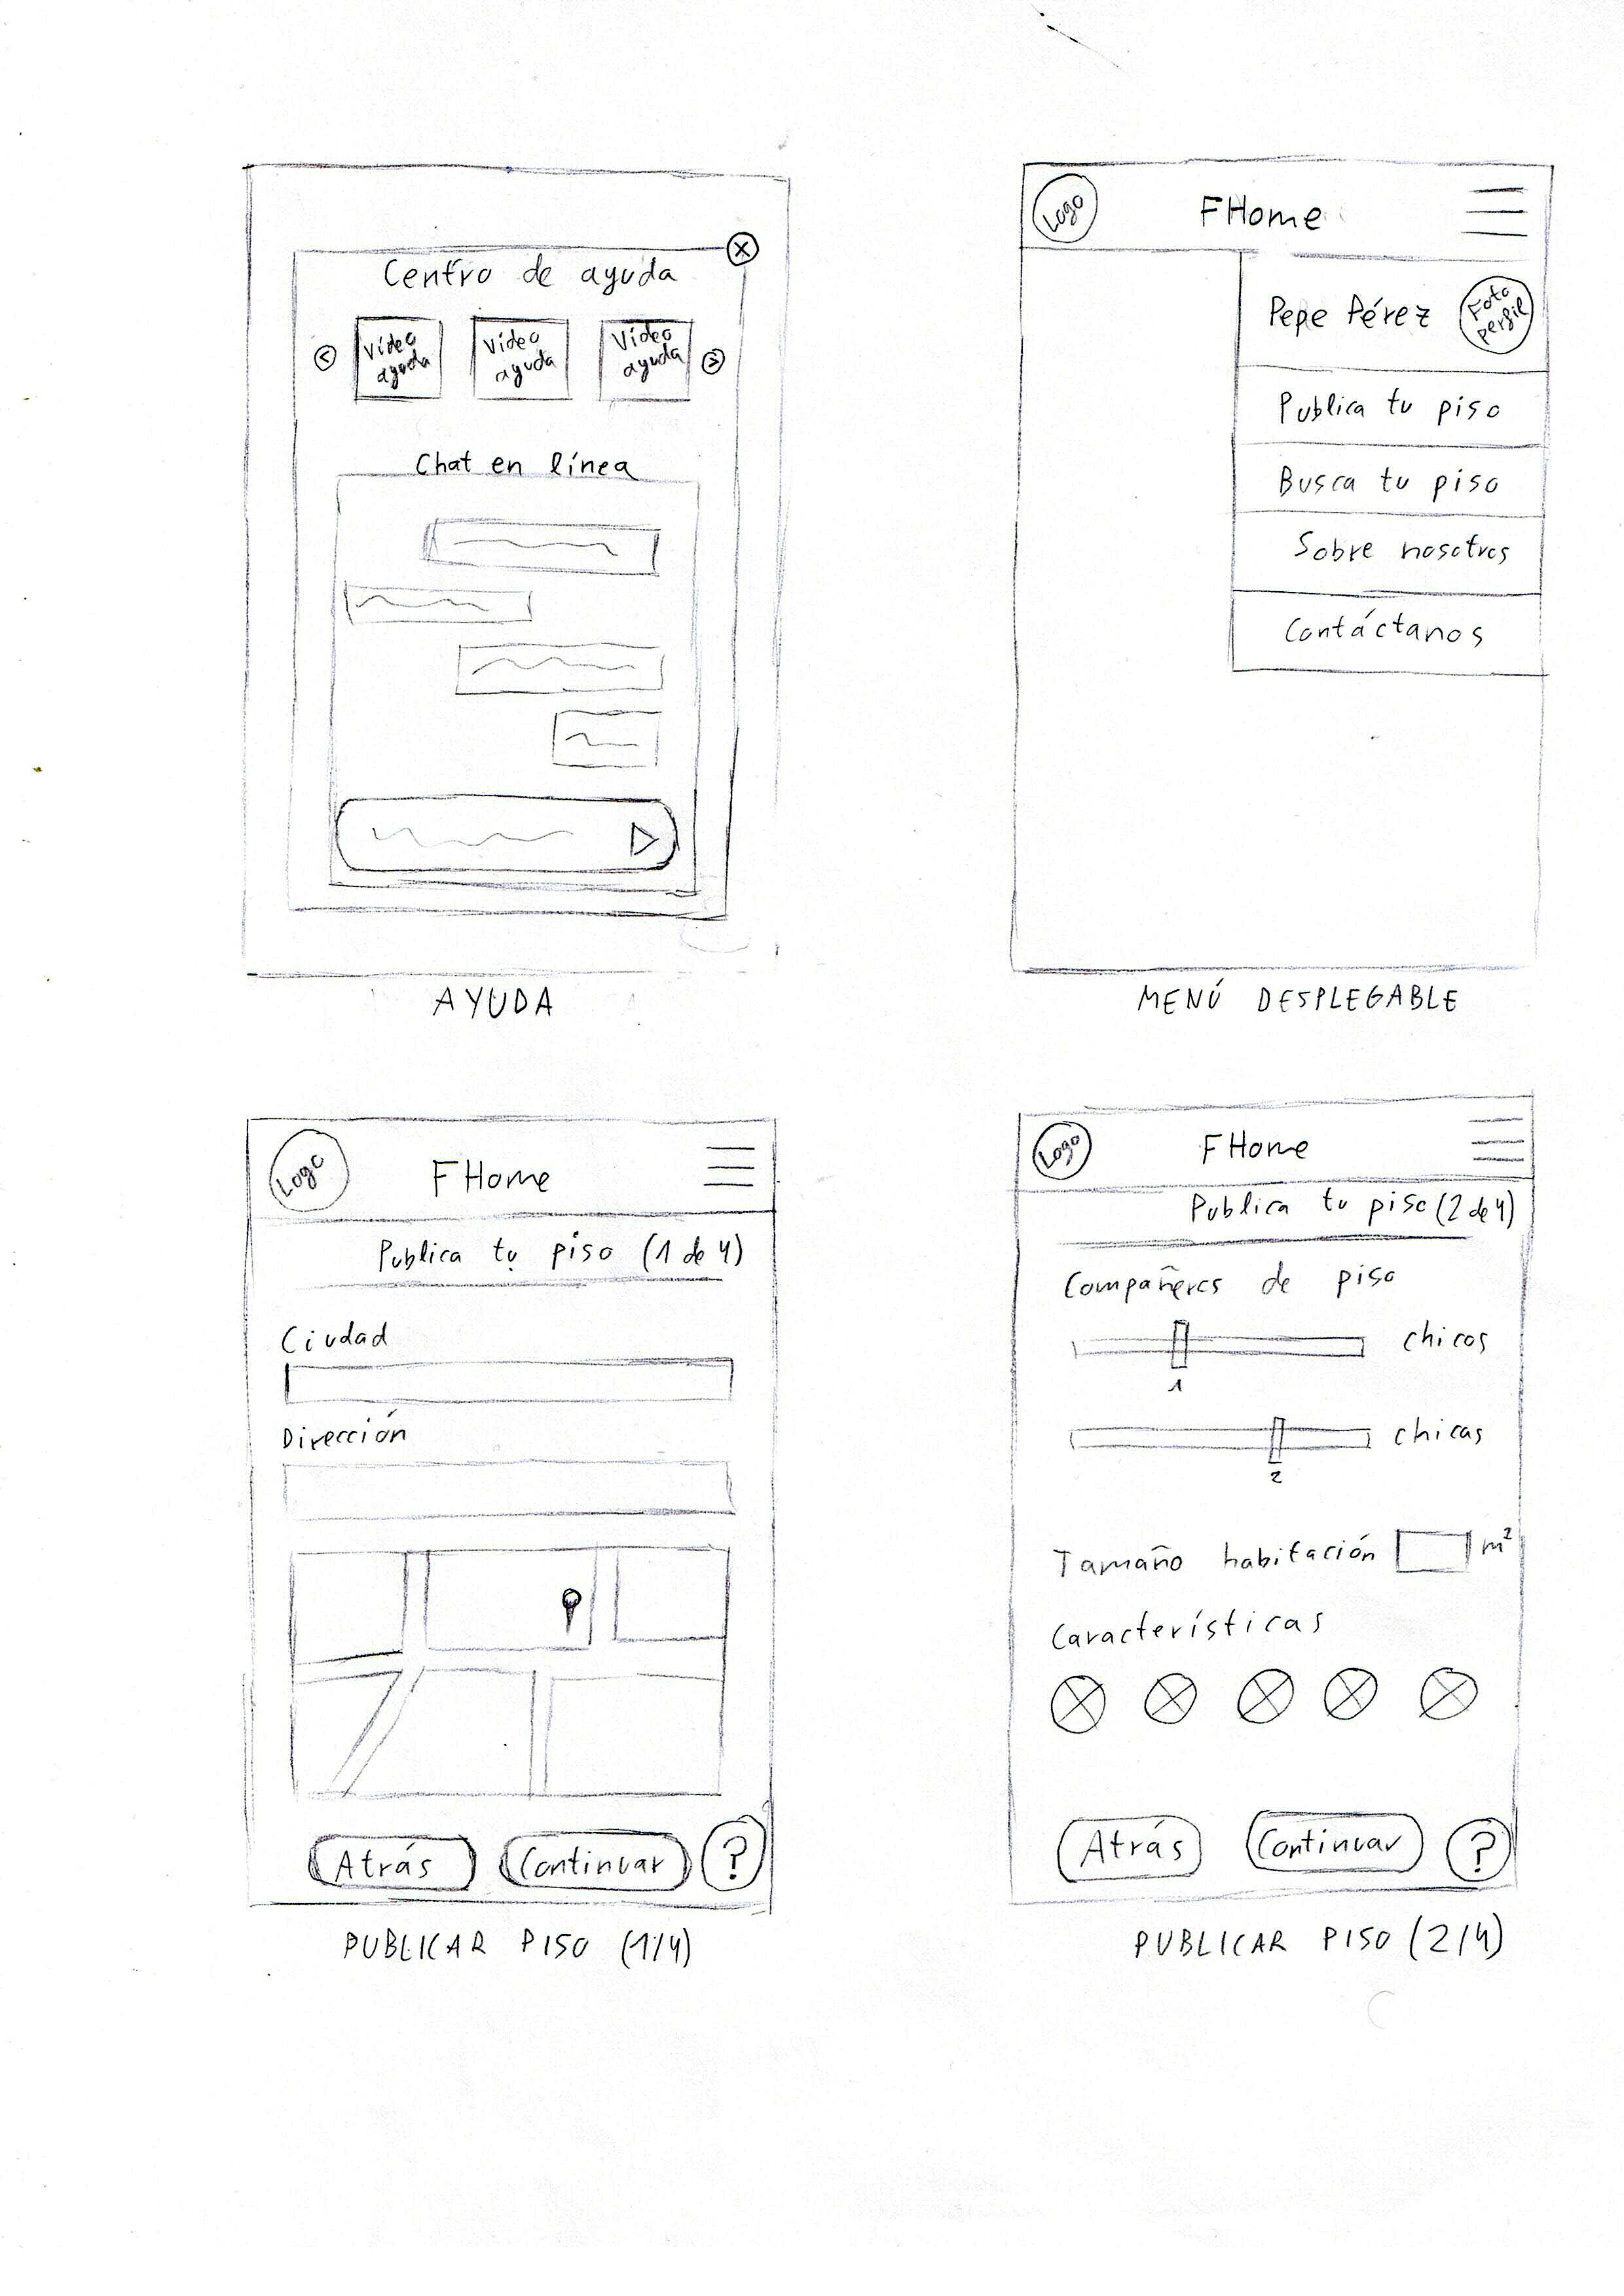 Centro de ayuda
Vídeo ayuda
Vídeo ayuda
Vídeo ayuda
Chat en línea
AYUDA
Logo
FHome
Pepe Pérez
Foto perfil
Publica tu piso
Busca tu piso
Sobre nosotros
Contáctanos
MENÚ DESPLEGABLE
Logo
FHome
Publica tu piso (1 de 4)
Ciudad
Dirección
Atrás
Continuar
?
PUBLICAR PISO (1/4)
Logo
FHome
Publica tu piso (2 de 4)
Compañeros de piso
chicos
1
chicas
2
Tamaño habitación m²
Características
Atrás
Continuar
?
PUBLICAR PISO (2/4)